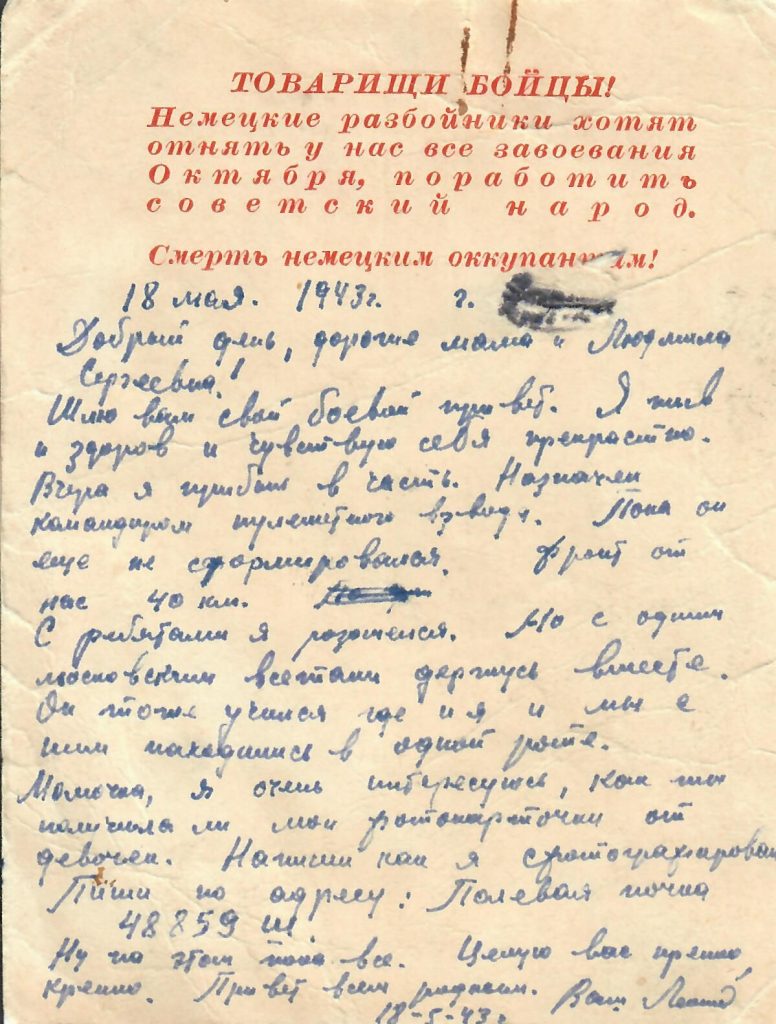 ТОВАРИЩИ БОЙЦЫ!
Немецкие разбойники хотят
отнять у нас все завоевания
Октября, поработить
советский народ.
Смерть немецким оккупантам!
18 мая. 1943г. г.
Добрый день, дорогие мама и Людмила
Сергеевна!
Шлю вам свой боевой привет. Я жив
и здоров и чувствую себя прекрастно.
Вчера я прибыл в часть. Назначен
командиром пулеметного взвода. Пока он
еще не сформировался. Фронт от
нас 40 км.
С ребятами я разошелся. Но с одним
московским всетаки держусь вместе.
Он тоже учился где и я и мы с
ним находились в одной роте.
Мамочка, я очень интересуюсь, как ты
получила ли мои фотокарточки от
девочек. Напиши как я сфотографирован
Пиши по адресу: Полевая почта
48859 Ш.
Ну на этом пока все. Целую вас крепко,
крепко. Привет всем родным. Ваш Леонид
18-5-43г.